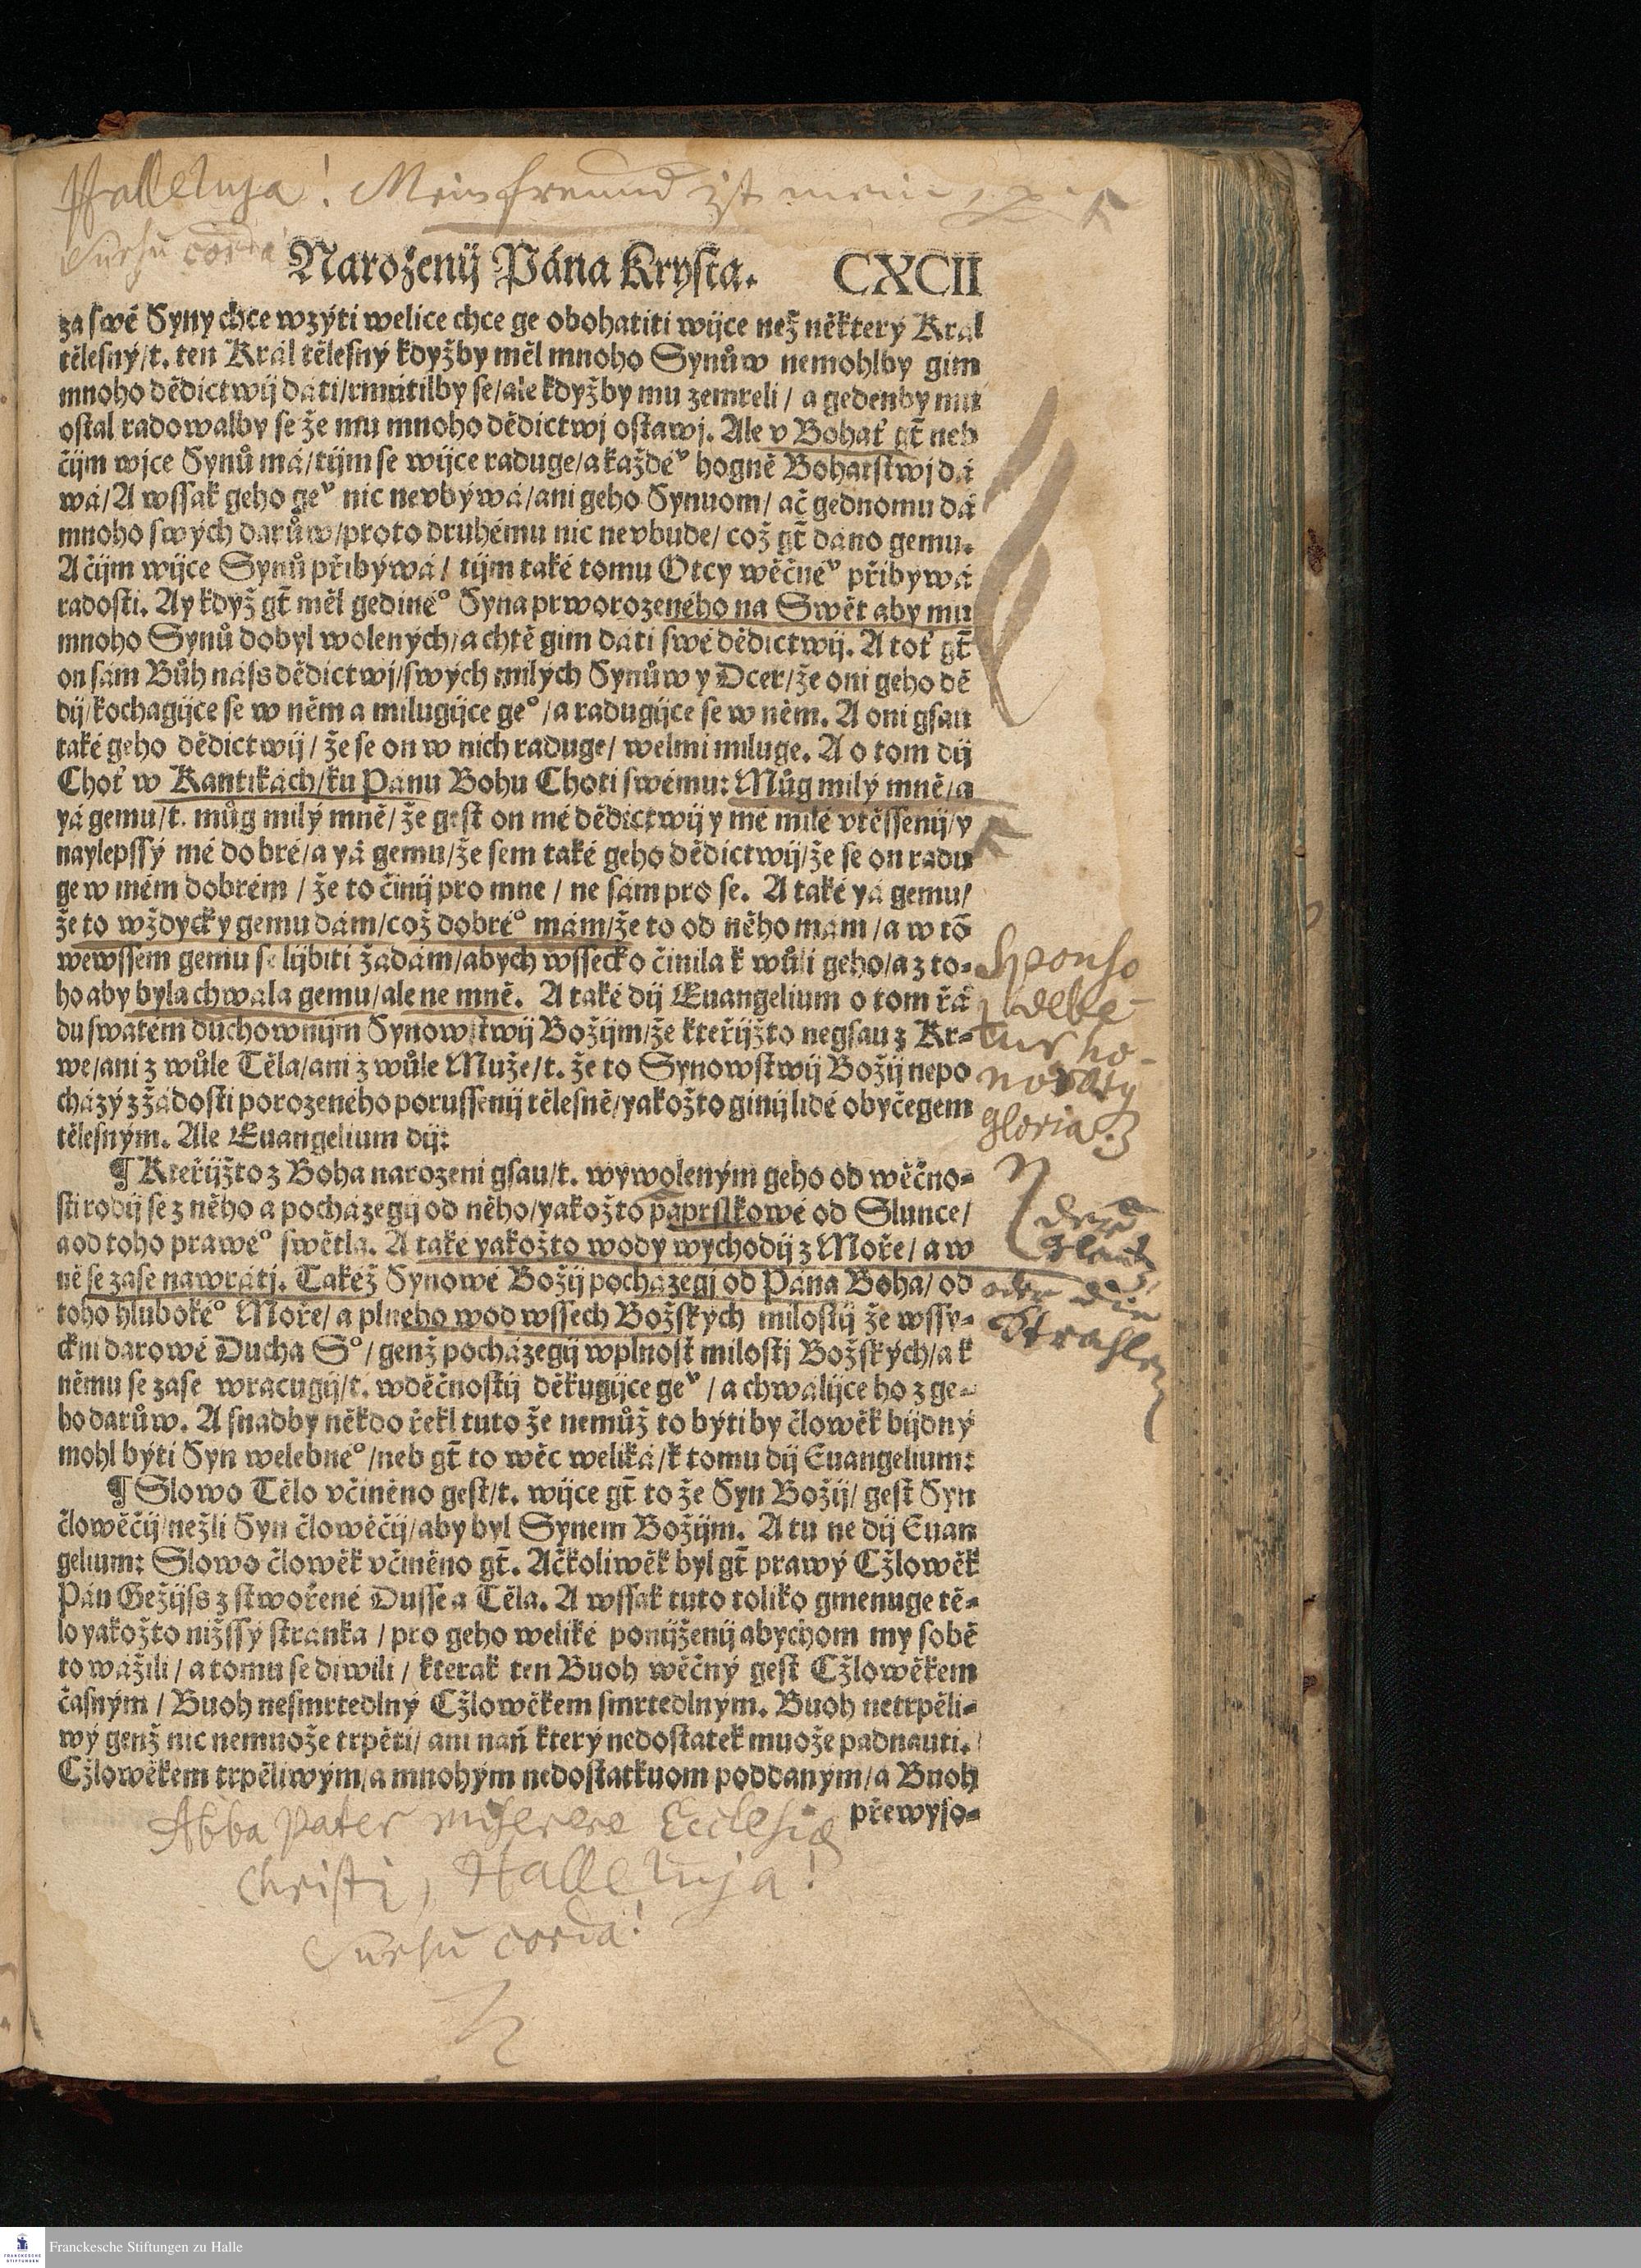 Halleluja! Mein freund ist mein,
Sursū corda
Narozenij Pána Krysta. CXCII
za swé Syny chce wzýti welice chce ge obohatiti wijce než některý Kral
tělesný/t. ten Král tělesný kdyžby měl mnoho Synůw nemohlby gim
mnoho dědictwij dáti/rmútilby se/ale kdyžby mu zemřeli / a gedenby mu
ostal radowalby se že mu mnoho dědictwj ostawj. Ale v Bohať gt̄ neb
čijm wjce Synů má/tijm se wijce raduge/a každéᵛ hogně Bohatstwj dá
wá/A wssak geho geᵛ nic nevbýwá/ani geho Synuom/ ač gednomu dá
mnoho swých darůw/proto druhému nic nevbude/ což gt̄ dano gemu.
A čijm wijce Synů přibýwá/ tijm také tomu Otcy wěčnéᵛ přibýwá
radosti. Ay když gt̄ měl gedinéᵒ Syna prworozeného na Swět aby mu
mnoho Synů dobyl wolených/a chtě gim dáti swé dědictwij. A toť gt̄
on sám Bůh náss dědictwj/swých milých Synůw y Dcer/že oni geho dě
dij/kochagijce se w něm a milugijce geᵒ/a radugijce se w něm. A oni gsau
také geho dědictwij/ že se on w nich raduge/ welmi miluge. A o tom dij
Choť w Kantikách/ku Pánu Bohu Choti swému: Můg milý mně/a
yá gemu/t. můg milý mně/ že gest on mé dědictwij y mé milé vtěssenij/y
naylepssý mé dobré/a yá gemu/že sem také geho dědictwij/že se on radu
ge w mém dobrém / že to činij pro mne / ne sám pro se. A také yá gemu/
že to wždycky gemu dám/což dobréᵒ mám/že to od něho mám /a w tō
wewssem gemu se lijbiti žádám/abych wssecko činila k wůli geho/a z to-
ho aby byla chwala gemu/ale ne mně. A také dij Euangelium o tom řá
du swatém duchownijm Synowstwij Božijm/že kteřijžto negsau z Kr-
we/ani z wůle Těla/ani z wůle Muže/t. že to Synowstwij Božij nepo
cházý z žádosti porozeného porussenij tělesně/yakožto ginij lidé obyčegem
tělesným. Ale Euangelium dij:
¶ Kteřijžto z Boha narozeni gsau/t. wywoleným geho od wěčno-
sti rodij se z něho a pocházegij od něho/yakožto paprslkowé od Slunce/
a od toho prawéᵒ swětla. A také yakožto wody wychodij z Moře/ a w
ně se zase nawrátj. Takéž Synowé Božij pocházegj od Pána Boha/ od
toho hlubokéᵒ Moře/ a plného wod wssech Božských milostij že wssy-
ckni darowé Ducha Sᵒ/ genž pocházegij w plnost milostj Božských/a k
němu se zase wracugij/t. wděčnostij děkugijce geᵛ / a chwalijce ho z ge-
ho darůw. A snadby někdo řekl tuto že nemůž to býti by člowěk bijdný
mohl býti Syn welebnéᵒ/neb gt̄ to wěc weliká/k tomu dij Euangelium:
¶ Slowo Tělo včiněno gest/t. wijce gt̄ to že Syn Božij/ gest Syn
člowěčij/nežli Syn člowěčij/aby byl Synem Božijm. A tu ne dij Euan
gelium: Slowo člowěk včiněno gt̄. Ačkoliwěk byl gt̄ prawý Cžlowěk
Pán Gežijss z stwořené Dusse a Těla. A wssak tuto toliko gmenuge tě-
lo yakožto nižssý stránka / pro geho weliké ponijženij abychom my sobě
to wážili / a tomu se diwili / kterak ten Buoh wěčný gest Cžlowěkem
časným / Buoh nesmrtedlný Cžlowěkem smrtedlným. Buoh netrpěli-
wý genž nic nemuože trpěti/ ani naň který nedostatek muože padnauti.
Cžlowěkem trpěliwým/a mnohým nedostatkuom poddaným/a Buoh
přewyso-
Sponso
debe-
tur ho-
nor &
gloria.
der
Glantz
oder die
Strahlen
Abba Pater miserere Ecclesiæ
Christi, Halleluja!
Sursū corda!